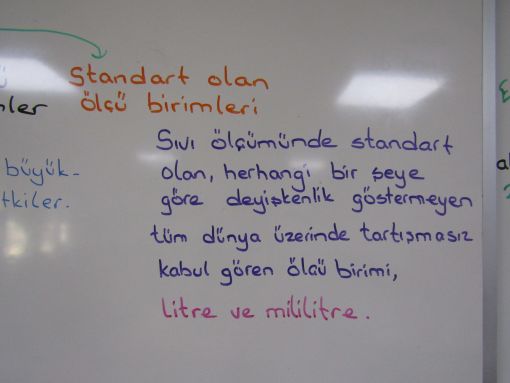 Standart olan
mler ölçü birimleri
Sıvı ölçümünde standart
büyük- olan, herhangi bir şeye
tkiler. göre deyişkenlik göstermeyen
tüm dünya üzerinde tartışmasız
kabul gören ölçü birimi,
litre ve mililitre.